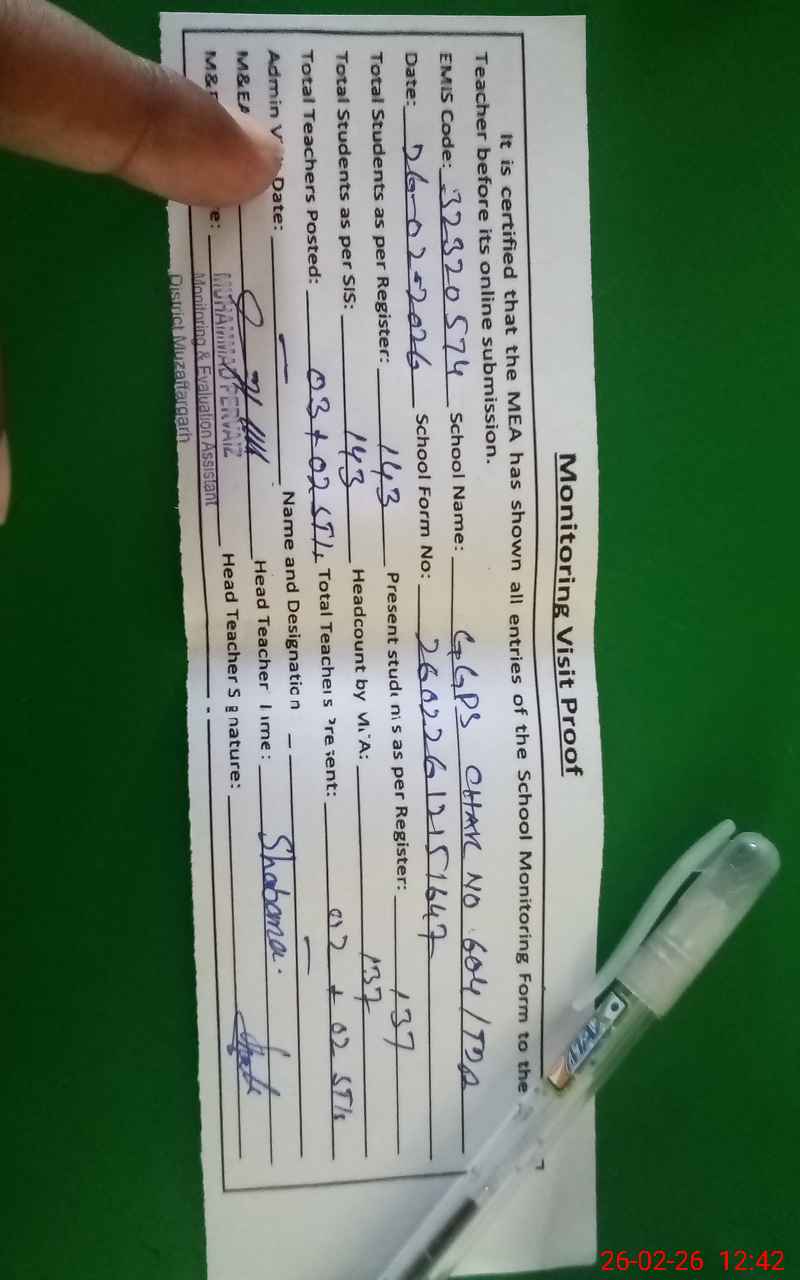 Monitoring Visit Proof
It is certified that the MEA has shown all entries of the School Monitoring Form to the
Teacher before its online submission.
EMIS Code: 32320574 School Name: GGPS CHAK NO 604/TDA
Date: 26-02-2026 School Form No: 26022612151647
Total Students as per Register: 143 Present students as per Register: 137
Total Students as per SIS: 143 Headcount by MEA: 137
Total Teachers Posted: 03+02 STIs Total Teachers Present: + 02 STIs
Admin Date: — Name and Designation —
M&EA Head Teacher Name: Shabana.
M&E Head Teacher Signature:
MUHAMMAD PERVAIZ
Monitoring & Evaluation Assistant
District Muzaffargarh
26-02-26 12:42